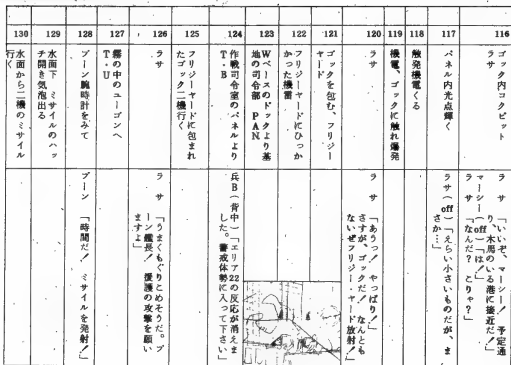 116
ゴック内コクピット
ラサ
ラサ「いいぞ、マーシー!予定通
り、木馬のいる港に接近だ!」
マーシー(off)「は!」
ラサ「なんだ?こりゃ?」
117
パネル内光点輝く
ラサ(off)「えらい小さいものだが、ま
さか…」
118
触発機雷くる
119
機雷、ゴックに触れ爆発
120
ラサ
ラサ「あうっ!やっぱり!
さすが、ゴックだ!なんとも
ないぜフリージーヤード放射!」
121
ゴックを包む、フリージー
ヤード
122
フリージーヤードにひっか
かった機雷
123
Wベースのドックより基
地の司令部 PAN
124
作戦司令室のパネルより
T・B
兵B(背中)「エリア22の反応が消えま
した。警戒体勢に入って下さい」
125
フリジーヤードに包まれ
たゴック二機行く
126
ラサ
ラサ「うまくもぐりこめそうだ。ブ
ーン艦長!援護の攻撃を願い
ますよ」
127
霧の中のユーゴンへ
T・U
128
ブーン腕時計をみて
ブーン「時間だ!ミサイルを発射!」
129
水面下、ミサイルのハッ
チ開き気泡出る
130
水面から二機のミサイル
行く